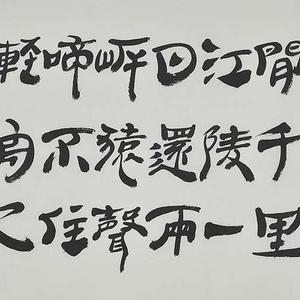 間千里
江陵一
日還兩
岸猿聲
啼不住
輕舟已